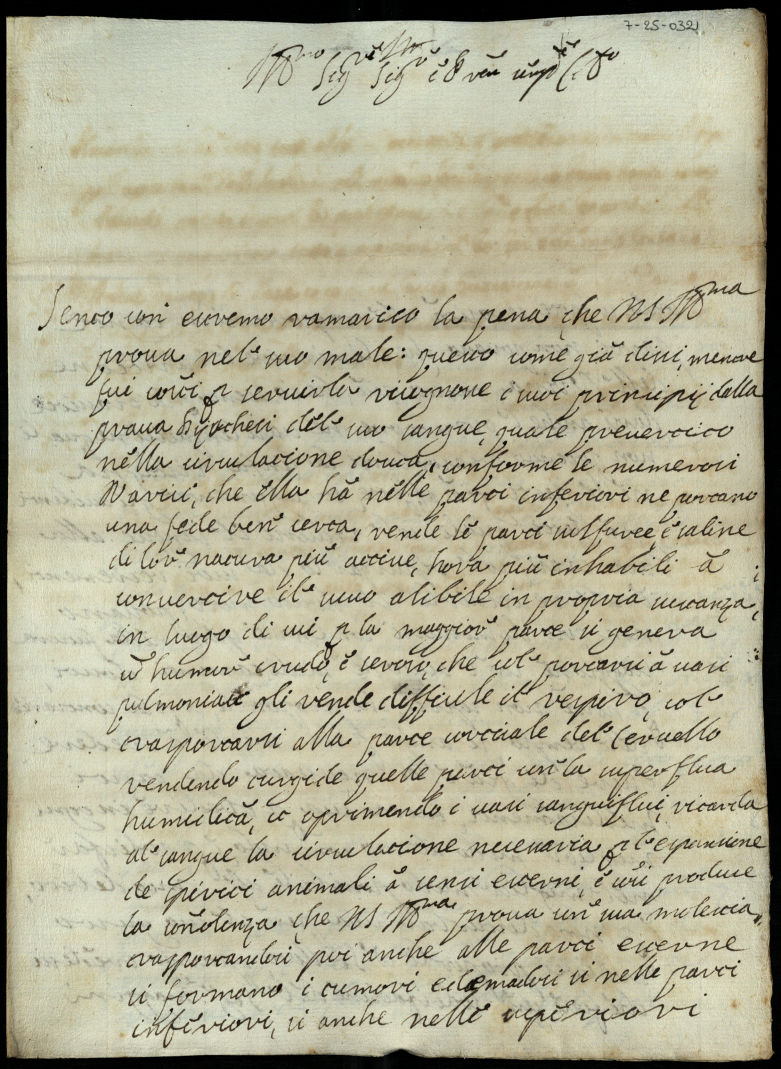 7-25-032
Ill^mo Sig^re Sig^re e P
Sento con estremo ramarico la pena che VS Ill^ma
prova nel suo male: questo come già dissi, mentre
fui costì p servirla ricognone i suoi principij dalla
prava del suo sangue, quale pervertito
nella circulatione douta, conforme le numerosi
Varici, che ella hà nelle parti inferiori ne portano
una fede ben certa, rende le parti sulfuree, e saline
di lor natura più attive, hora più inhabili à
convertire il suco alibile in propria sustanza,
in luogo di cui p la maggior parte si genera
un humor crudo, e seroso, che col portarsi à vasi
pulmoniaci gli rende difficile il respiro, col
trasportarsi alla parte corticale del Cervello
rendendo turgide quelle parti con la superflua
humidità, et oprimendo i vasi sanguiflui, ritarda
al sangue la circulatione necessaria p l'espansione
de spiriti animali à sensi esterni, e così produce
la sonolenza che VS Ill^ma prova con sua molestia,
trasportandosi poi anche alle parti esterne
si formano i tumori edematosi si nelle parti
inferiori, si anche nelle superiori